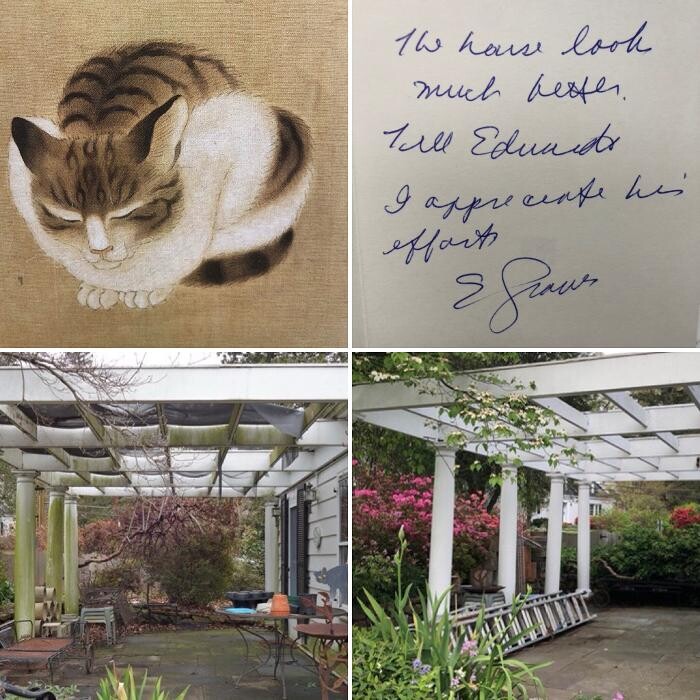 The house look
much better.
Tell Eduardo
I appreciate his
efforts
E Graves